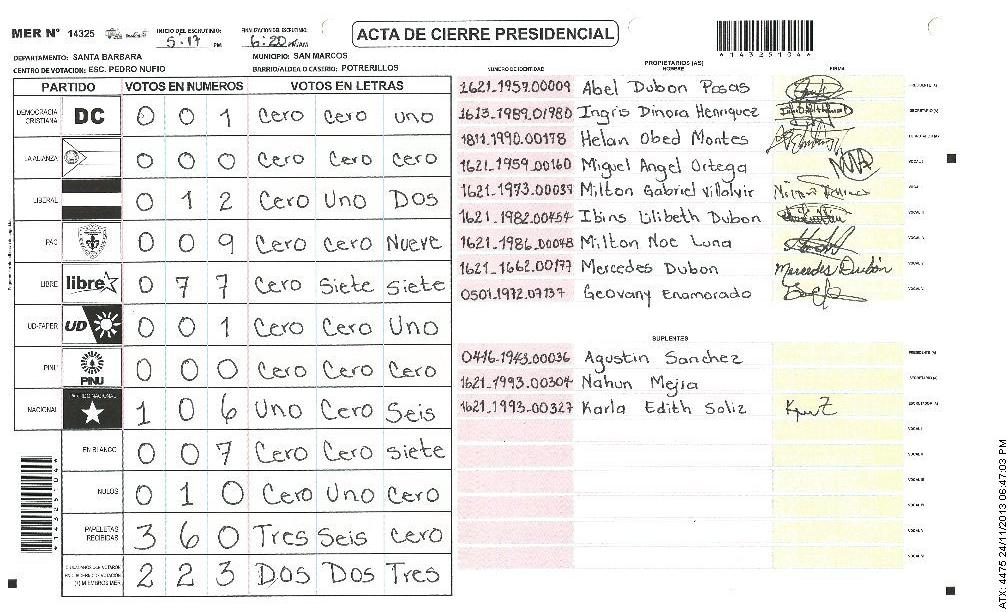 MER Nº 14325 INICIO DEL ESCRUTINIO: 5:17 PM FINALIZACION DEL ESCRUTINIO: 6:20
ACTA DE CIERRE PRESIDENCIAL
*14325104*
DEPARTAMENTO: SANTA BARBARA MUNICIPIO: SAN MARCOS
CENTRO DE VOTACION: ESC. PEDRO NUFIO BARRIO/ALDEA O CASERIO: POTRERILLOS
PARTIDO VOTOS EN NUMEROS VOTOS EN LETRAS
DEMOCRACIA CRISTIANA DC 0 0 1 Cero Cero uno
LA ALIANZA 0 0 0 Cero Cero Cero
LIBERAL 0 1 2 Cero Uno Dos
PAC 0 0 9 Cero Cero Nueve
LIBRE libre 0 7 7 Cero Siete Siete
UD-FAPER UD 0 0 1 Cero Cero Uno
PINU PINU 0 0 0 Cero Cero Cero
NACIONAL PARTIDO NACIONAL 1 0 6 Uno Cero Seis
EN BLANCO 0 0 7 Cero Cero siete
NULOS 0 1 0 Cero Uno Cero
PAPELETAS RECIBIDAS 3 6 0 Tres Seis cero
CIUDADANOS QUE VOTARON EN CUADERNO DE VOTACION (+) MIEMBROS MER 2 2 3 Dos Dos Tres
PROPIETARIOS (AS)
NUMERO DE IDENTIDAD NOMBRE FIRMA
1621-1957-00009 Abel Dubon Posas PRESIDENTE (A)
1613-1989-01980 Ingris Dinora Henriquez SECRETARIO (A)
1811-1990-00178 Helan Obed Montes
1621-1959-00160 Miguel Angel Ortega VOCAL I
1621-1973-00039 Milton Gabriel Villalvir
1621-1982-00454 Ibins Lilibeth Dubon
1621-1986-00048 Milton Noe Luna
1621-1662-00177 Mercedes Dubon Mercedes Dubón
0501-1972-07137 Geovany Enamorado
SUPLENTES
0416-1943-00036 Agustin Sanchez PRESIDENTE (A)
1621-1993-00304 Nahun Mejia SECRETARIO (A)
1621-1993-00327 Karla Edith Soliz
VOCAL I
VOCAL II
VOCAL III
VOCAL IV
VOCAL V
VOCAL VI
ATX: 4475 24/11/2013 06:47:03 PM